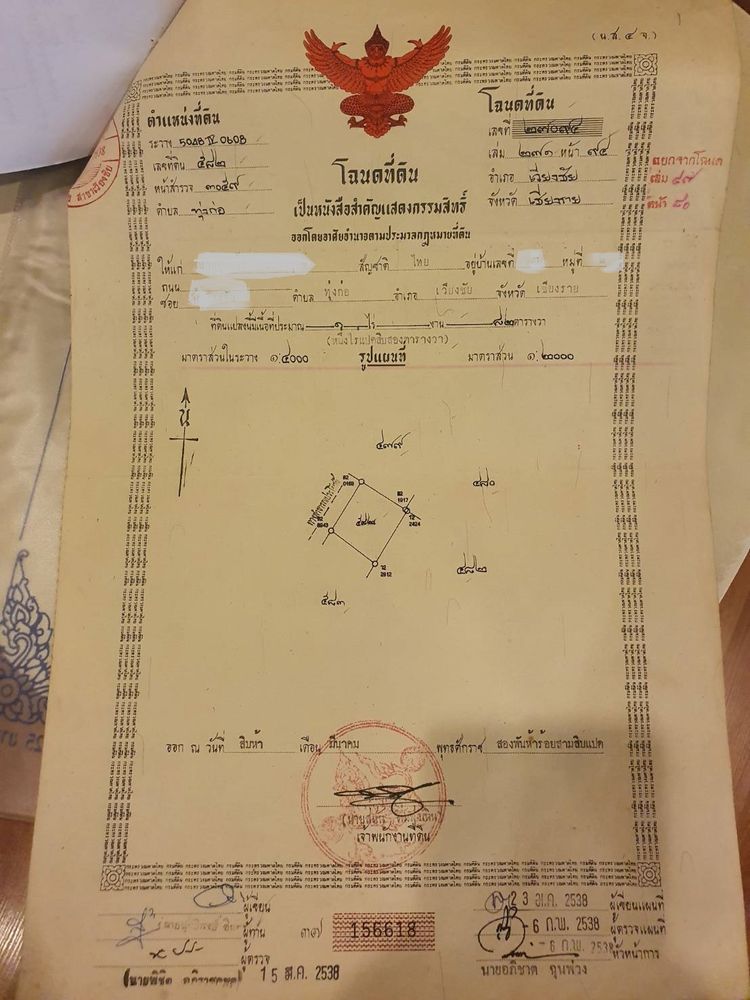 (น.ส. ๔ จ.)
ตำแหน่งที่ดิน
ระวาง 5048 IV 0608
เลขที่ดิน ๕๘๒
หน้าสำรวจ ๓๐๕๙
ตำบล ทุ่งก่อ
โฉนดที่ดิน
เลขที่ ๒๗๐๙๔
เล่ม ๒๗๑ หน้า ๙๔
อำเภอ เวียงชัย
จังหวัด เชียงราย
แยกจากโฉนด
เล่ม ๔๗
หน้า ๘๐
โฉนดที่ดิน
เป็นหนังสือสำคัญแสดงกรรมสิทธิ์
ออกโดยอาศัยอำนาจตามประมวลกฎหมายที่ดิน
ให้แก่ สัญชาติ ไทย อยู่บ้านเลขที่ หมู่ที่
ถนน
ซอย ตำบล ทุ่งก่อ อำเภอ เวียงชัย จังหวัด เชียงราย
ที่ดินแปลงนี้มีเนื้อที่ประมาณ ๑ ไร่ งาน ๘๒ ตารางวา
(หนึ่งไร่แปดสิบสองตารางวา)
มาตราส่วนในระวาง ๑:๔๐๐๐ รูปแผนที่ มาตราส่วน ๑:๒๐๐๐
น
๔๗๙
๔๘๐
82
0169
82
1917
12
2424
12
2612
๕๘๒
๕๘๓
ออก ณ วันที่ สิบห้า เดือน มีนาคม พุทธศักราช สองพันห้าร้อยสามสิบแปด
เจ้าพนักงานที่ดิน
ผู้เขียน
ผู้ทาน
ผู้ตรวจ
15 มี.ค. 2538
๓๗ 156618
23 ม.ค. 2538 ผู้เขียนแผนที่
6 ก.พ. 2538 ผู้ตรวจแผนที่
- 6 ก.พ. 2538 หัวหน้าการ
นายอภิชาต ฉุนพ่วง